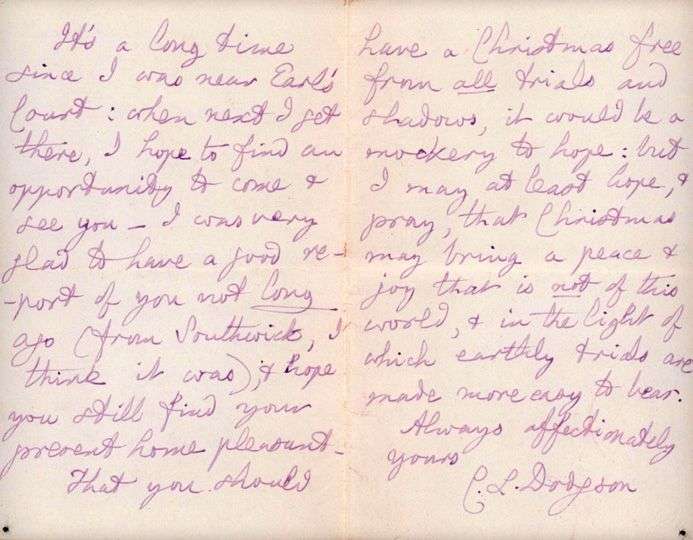 It's a long time
since I was near Earl's
Court: when next I get
there, I hope to find an
opportunity to come &
see you — I was very
glad to have a good re-
-port of you not long
ago (from Southwick, I
think it was), & hope
you still find your
present home pleasant —
That you should
have a Christmas free
from all trials and
shadows, it would be a
mockery to hope: but
I may at least hope, &
pray, that Christmas
may bring a peace &
joy that is not of this
world, & in the light of
which earthly trials are
made more easy to bear.
Always affectionately
yours
C. L. Dodgson